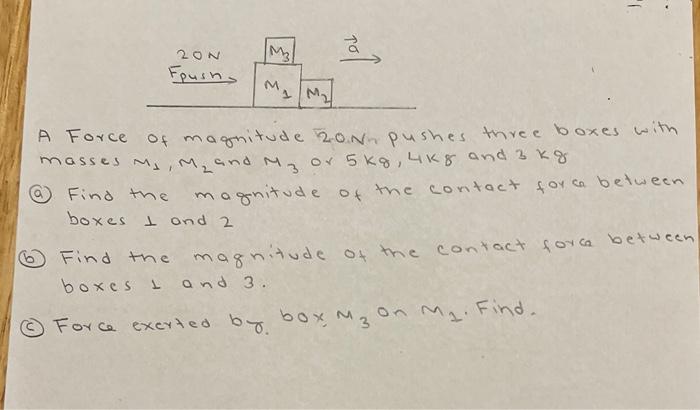 20N
Fpush
M3
a
M1
M2
A Force of magnitude 20N pushes three boxes with
masses M1, M2 and M3 of 5 kg, 4 kg and 3 kg
(a) Find the magnitude of the contact force between
boxes 1 and 2
(b) Find the magnitude of the contact force between
boxes 1 and 3.
(c) Force exerted by box M3 on M1. Find.